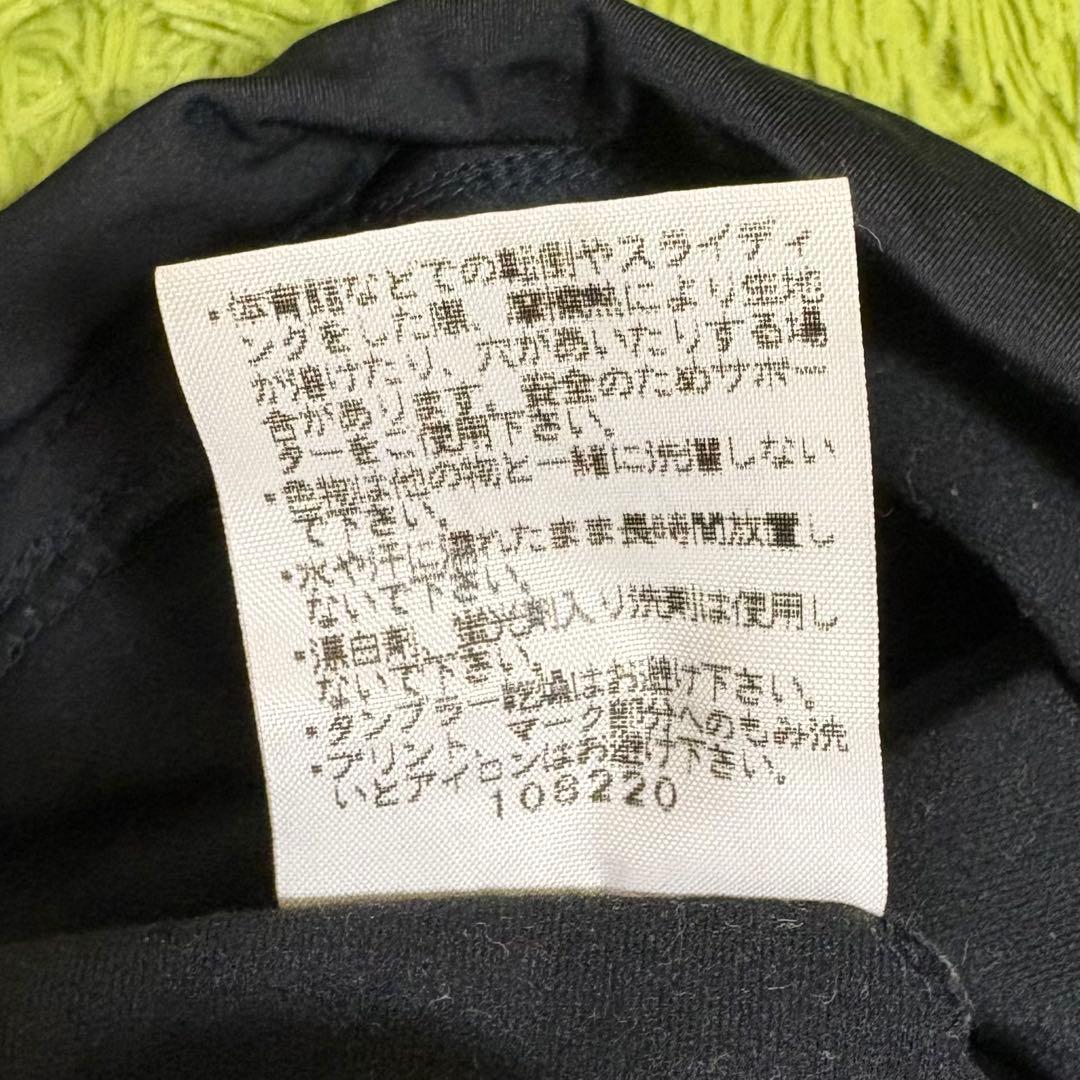 ・体育館などでの転倒やスライディ
ングをした際、摩擦熱により生地
が溶けたり、穴があいたりする場
合があります。安全のためサポー
ターをご使用下さい。
・色物は他の物と一緒に洗濯しない
で下さい。
・水や汗に濡れたまま長時間放置し
ないで下さい。
・漂白剤、蛍光剤入り洗剤は使用し
ないで下さい。
・タンブラー乾燥はお避け下さい。
・プリント、マーク部分へのもみ洗
いとアイロンはお避け下さい。
108220